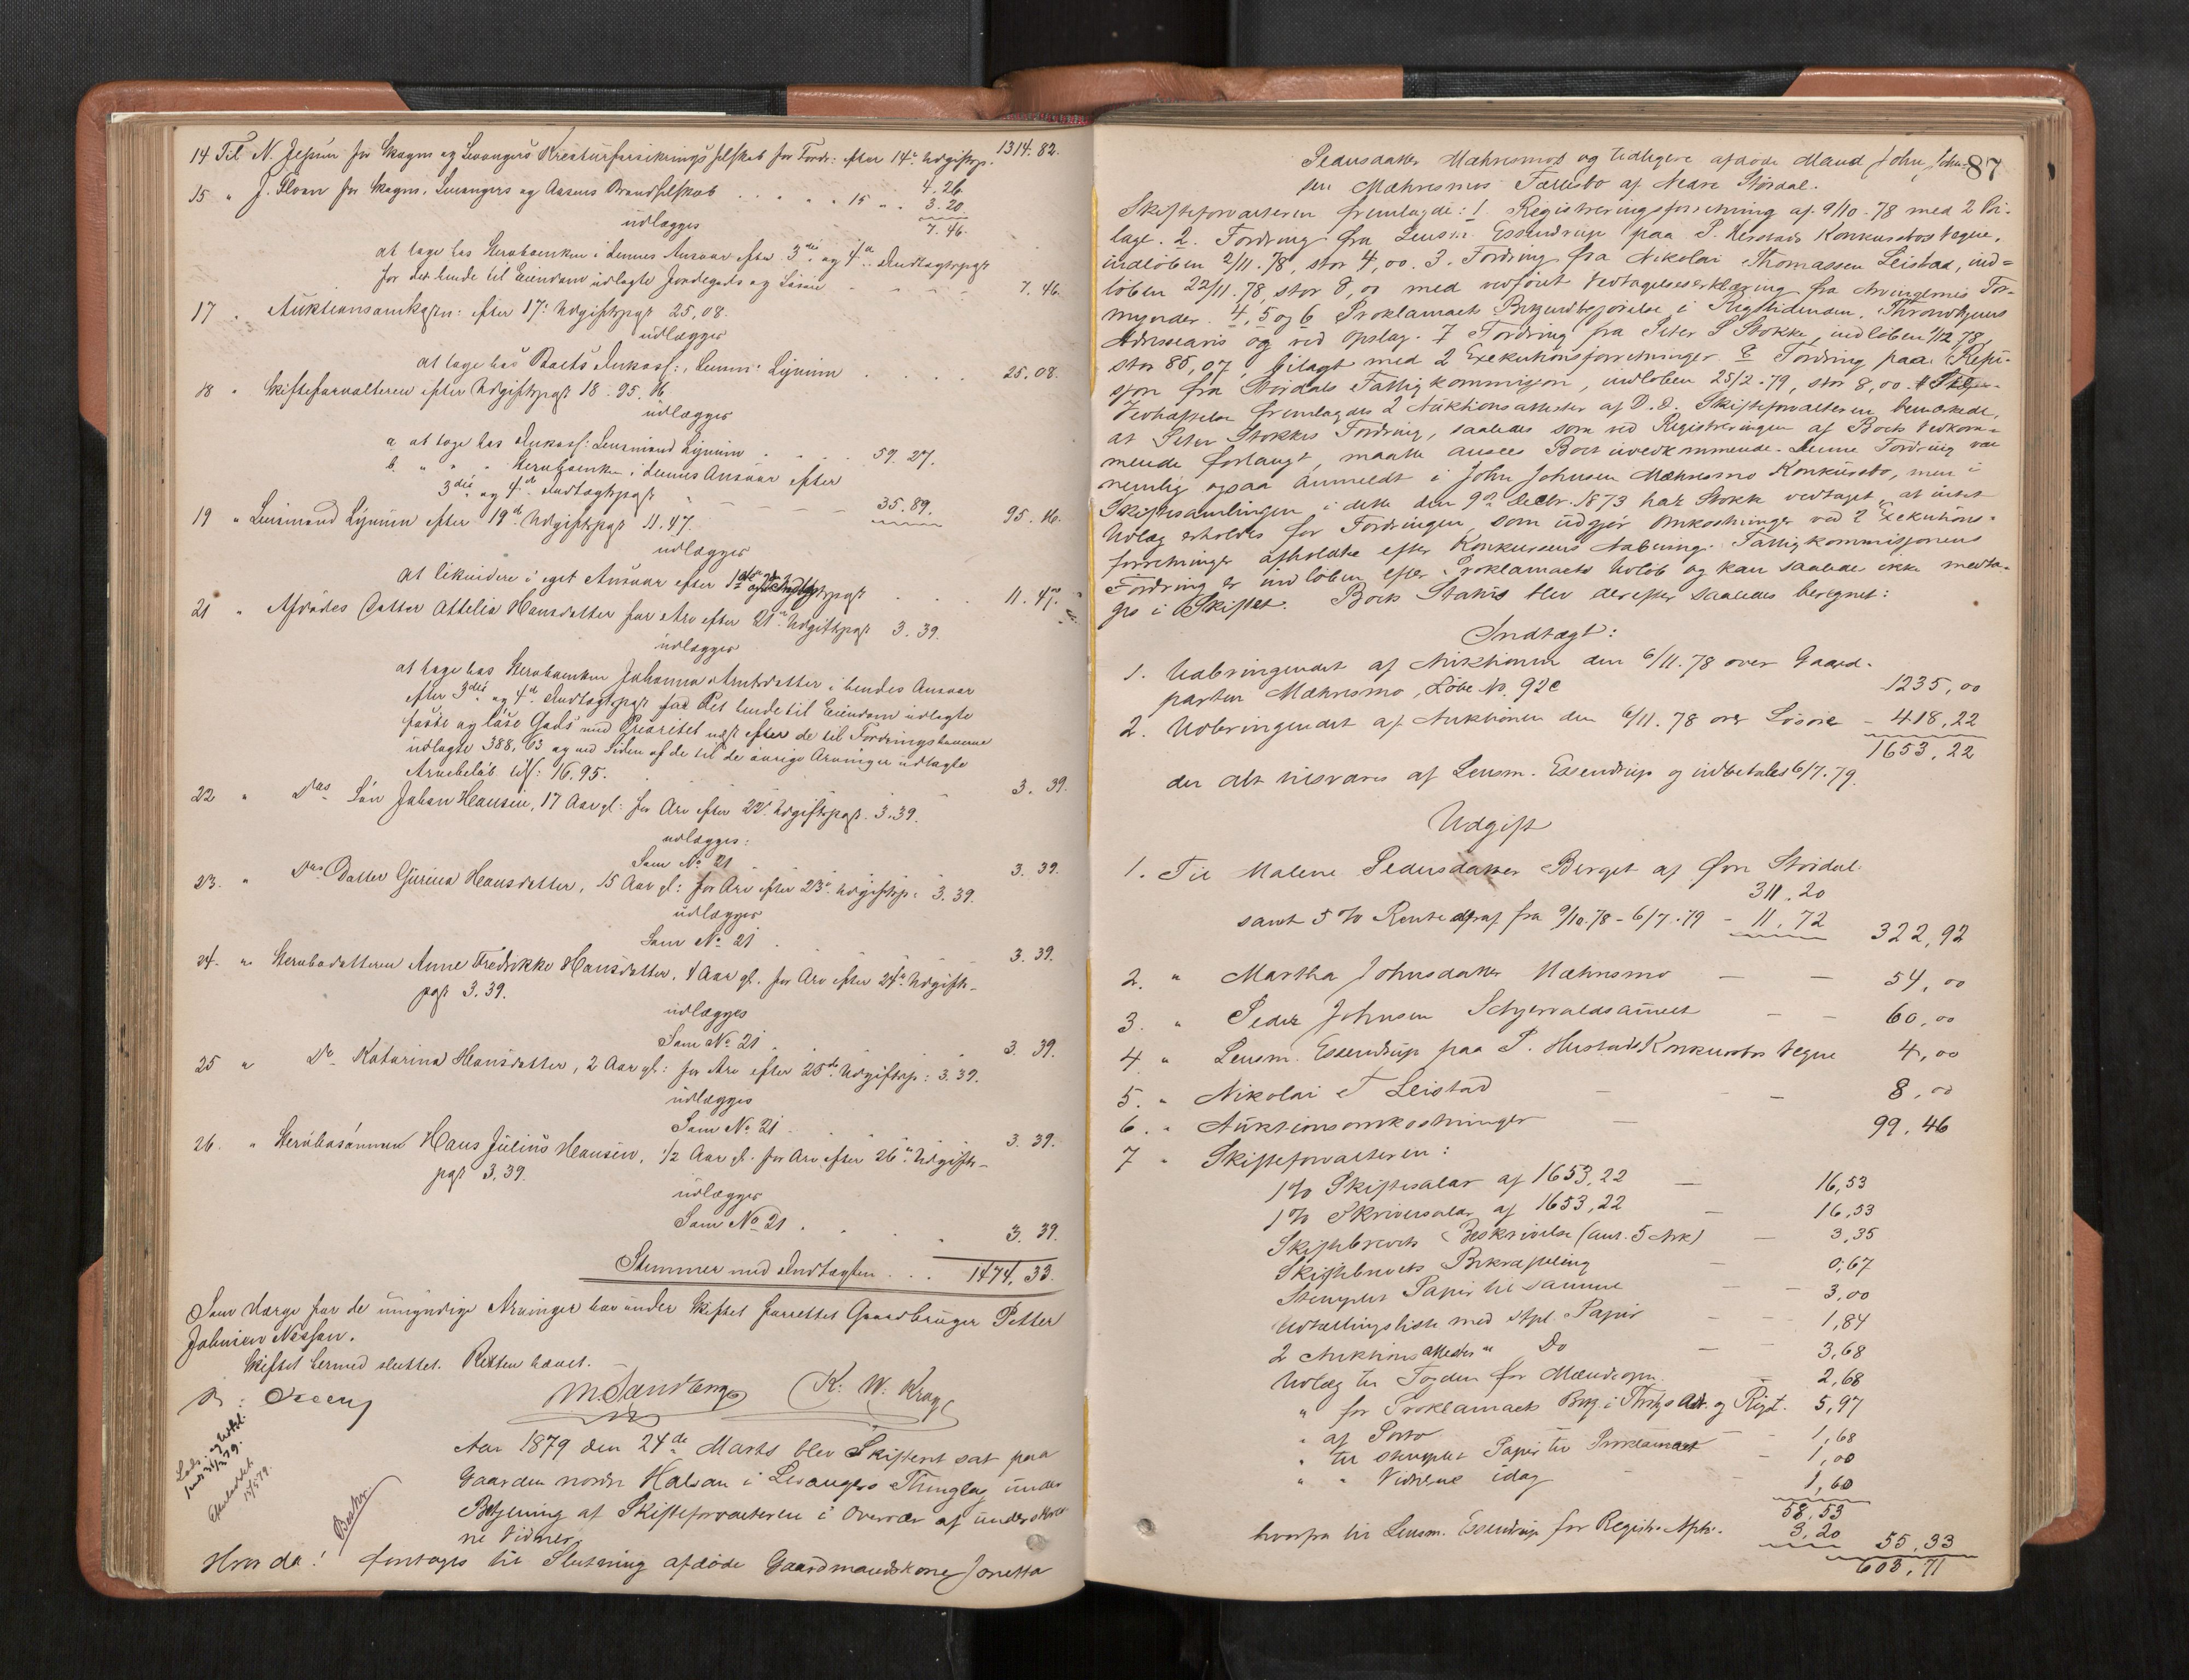 14 Til N. Jelsum for Skogns og Levangers Kreaturforsikringsselskab for Fordr: efter 14de Udgiftsp. 1314.82.
15 " J. Floan for Skogns, Levangers og Aasens Brandselskab . . . " " 15 " " 4.26
3.20
udlægges 7.46.
at tage hos Sterboenken i dennes Ansvar efter 3die og 4de Indtægtspost
for det hende til Eiendom udlagte Jordegods og Løsøre . . . . 7.46.
17 " Auktionsomkostn: efter 17de Udgiftspost 25,08.
udlægges
at tage hos Boets Inkass:, Lensm: Lynum . . . . 25.08.
18 " Skifteforvalteren efter Udgiftspost 18 - 95.16
udlægges
a at tage hos Inkass: Lensmand Lynum . . . 59.27.
b. " " " Sterboenken i dennes Ansvar efter
3die og 4de Indtægtspost " - - - - 35.89. 95.16.
19 " Lensmand Lynum efter 19de Udgiftspost 11.47.
udlægges
at likvidere i eget Ansvar efter 1ste og 2den Indtægtspost . . 11.47.
21 " Afdødes Datter Attelia Hansdatter for Arv efter 21de Udgiftspost 3.39.
udlægges
at tage hos Sterboenken Johanna Arntsdatter i hendes Ansvar
efter 3die og 4de Indtægtspost for Det hende til Eiendom udlagte
faste og løse Gods med Prioritet næst efter de til Fordringshaverne
udlagte 388,63 og ved Siden af de til de øvrige Arvinger udlagte
Arvebeløb tils: 16.95. . . . . 3.39.
22 " Ds Søn Johan Hansen, 17 Aar gl: for Arv efter 22de Udgiftspost 3.39.
udlægges:
Som No 21 . . . . 3.39.
23. " Ds Datter Gurina Hansdatter, 15 Aar gl: for Arv efter 23de Udgiftsp: 3.39.
udlægges
Som No 21 . . . . 3.39.
24. " Sterbodatteren Anne Fredrikke Hansdatter, 4 Aar gl. for Arv efter 24de Udgifts-
post 3.39.
udlægges
Som No 21 . . . . 3.39.
25 " Do Katarina Hansdatter, 2 Aar gl: for Arv efter 25de Udgiftsp: 3.39.
udlægges
Som No 21 . . . . 3.39.
26. " Sterbosønnen Hans Julius Hansen, 1/2 Aar gl. for Arv efter 26de Udgifts-
post 3,39.
udlægges
Som No 21 . . . . 3.39.
Stemmer med Indtægten . . . 1474,33.
Som Værge for de umyndige Arvinger har under Skiftet forrettet Gaardbruger Petter
Johnsen Nessan.
Skiftet hermed sluttet. Retten hævet.
M. Sandberg K. W. Krog
15/5 79.
Beskr.
Aar 1879 den 24de Marts blev Skifteret sat paa
Gaarden nordre Halsan i Levangers Thinglag under
Betjening af Skifteforvalteren i Overvær af underskrev-
ne Vidner.
Hvor da! foretoges til Slutning afdøde Gaardmandskone Jonetta
87
Pedersdatter Mæhresmos og tidligere afdøde Mand John John-
sen Mæhresmos Fællesbo af Nedre Stjørdal.
Skifteforvalteren fremlagde: 1. Registreringsforretning af 9/10-78 med 2 Bi-
lage. 2. Fordring fra Lensm. Essendrup paa P. Hustads Konkursbos Vegne,
indløben 2/11.78, stor 4,00. 3. Fordring fra Nikolai Thomassen Leistad, ind-
løben 22/11.78, stor 8,00 med vedføiet Vedtagelseserklæring fra Arvingernes For-
mynder. 4, 5 og 6 Proklamaets Bekjendtgjørelse i Rigstidenden, Throndhjems
Adresseavis og ved Opslag. 7 Fordring fra Peter S Stokke, indløben 1/12 78,
stor 85,07, bilagt med 2 Exekutionsforretninger. 8 Fordring paa Refu-
sjon fra Stjørdals Fattigkommisjon, indløben 25/2-79, stor 8,00.
Vedhæftelse fremlagdes 2 Auktionsattester af D.D. Skifteforvalteren bemærkede,
at Peter Stokkes Fordring, saaledes som ved Registreringen af Boets Vedkom-
mende forlangt, maatte ansees Boet uvedkommende. Denne Fordring var
nemlig ogsaa anmeldt i John Johnsen Mæhresmo Konkursbo, men i
Skiftesamlingen i dette den 9de Decbr. 1873 har Stokke vedtaget, at intet
Udlæg erholdes for Fordringen, som udgjør Omkostninger ved 2 Exekutions-
forretninger afholdte efter Konkursens Aabning. Fattigkommisjonens
Fordring er indløben efter Proklamaets Udløb og kan saaledes ikke medta-
ges i Skiftet. Boets Status blev derefter saaledes beregnet:
Indtægt:
1. Udbringendet af Auktionen den 6/11.78 over Gaard-
parten Mæhresmo, Løbe No. 92c 1235,00
2. Udbringendet af Auktionen den 6/11.78 over Løsøre - 418,22
1653,22
der alt tilsvares af Lensm. Essendrup og indbetales 6/7.79.
Udgift
1. Til Malene Pedersdatter Berget af Øvre Stordal.
311.20
samt 5 % Rente deraf fra 9/10.78 - 6/7.79 - 11.72 322,92
2. " Martha Johnsdatter Mæhresmo - - 54,00
3. " Peder Johnsen Schjervoldsaunet - - 60,00
4 " Lensm. Essendrup paa P. Hustads Konkursbos Vegne 4,00
5. " Nikolai T Leistad - - 8,00
6. " Auktionsomkostninger - 99.46
7 " Skifteforvalteren:
1 % Skiftesalær af 1653,22 - 16,53
1 % Skriversalær af 1653,22 - 16,53
Skiftebrevets Beskrivelse (ant. 5 Ark) - 3,35
Skiftebrevets Bekræftelse - 0,67
Stemplet Papir til samme - 3,00
Udtællingsliste med stpl. Papir - - 1,84
2 Auktionsattester " Do - - 3,68
Udlæg til Fogden for Mændsopn. - 2,68
" for Proklamaets Bkg. i Thrhjs Adr. og Rigst. 5,97
" af Porto - - 1,68
" til stemplet Papir til Proklamaet - 1,00
" " Vidnerne idag - 1,60
58,53
hvorfra til Lensm. Essendrup for Registr. Afh. 3,20 55,33
603,71